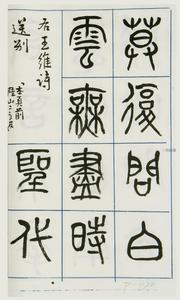 莫復問白
雲無盡時
右王維詩
送別
聖代